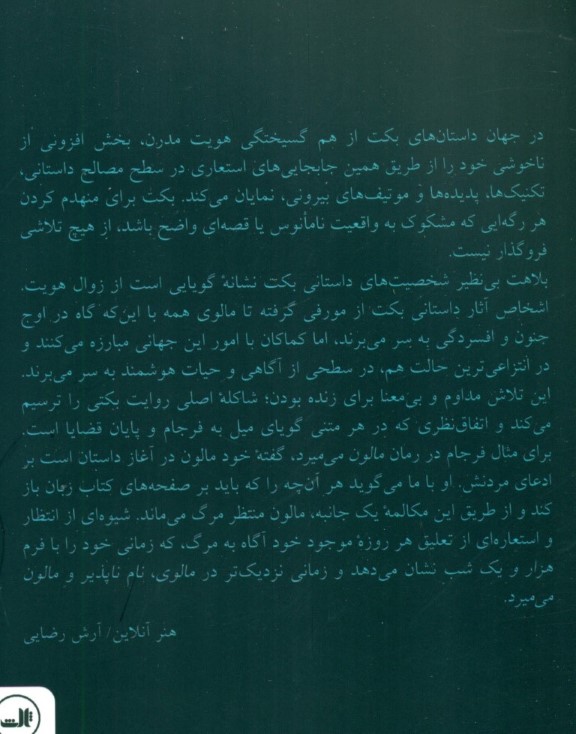 در جهان داستان‌های بکت از هم گسیختگی هویت مدرن، بخش افزونی از
ناخوشی خود را از طریق همین جابجایی‌های استعاری در سطح مصالح داستانی،
تکنیک‌ها، پدیده‌ها و موتیف‌های بیرونی، نمایان می‌کند. بکت برای منهدم کردن
هر رگه‌ایی که مشکوک به واقعیت نامأنوس یا قصه‌ای واضح باشد، از هیچ تلاشی
فروگذار نیست.
بلاهت بی‌نظیر شخصیت‌های داستانی بکت نشانهٔ گویایی است از زوال هویت.
اشخاص آثار داستانی بکت از مورفی گرفته تا مالوی همه با این‌که گاه در اوج
جنون و افسردگی به سر می‌برند، اما کماکان با امور این جهانی مبارزه می‌کنند و
در انتزاعی‌ترین حالت هم، در سطحی از آگاهی و حیات هوشمند به سر می‌برند.
این تلاش مداوم و بی‌معنا برای زنده بودن؛ شاکلهٔ اصلی روایت بکتی را ترسیم
می‌کند و اتفاق‌نظری که در هر متنی گویای میل به فرجام و پایان قضایا است.
برای مثال فرجام در رمان مالون می‌میرد، گفتهٔ خود مالون در آغاز داستان است بر
ادعای مردنش. او با ما می‌گوید هر آن‌چه را که باید بر صفحه‌های کتاب زمان باز
کند و از طریق این مکالمهٔ یک جانبه، مالون منتظر مرگ می‌ماند. شیوه‌ای از انتظار
و استعاره‌ای از تعلیق هر روزهٔ موجود خود آگاه به مرگ، که زمانی خود را با فرم
هزار و یک شب نشان می‌دهد و زمانی نزدیک‌تر در مالوی، نام ناپذیر و مالون
می‌میرد.
هنر آنلاین/ آرش رضایی
ثالث